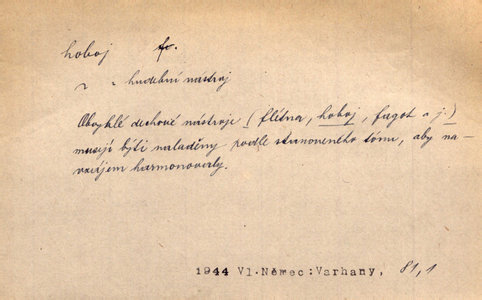 hoboj fr.
hudební nástroj
Obvyklé dechové nástroje (flétna, hoboj, fagot a j.)
musejí býti naladěny podle stanoveného tónu, aby na-
vzájem harmonovaly.
1944 Vl.Němec:Varhany, 81,1